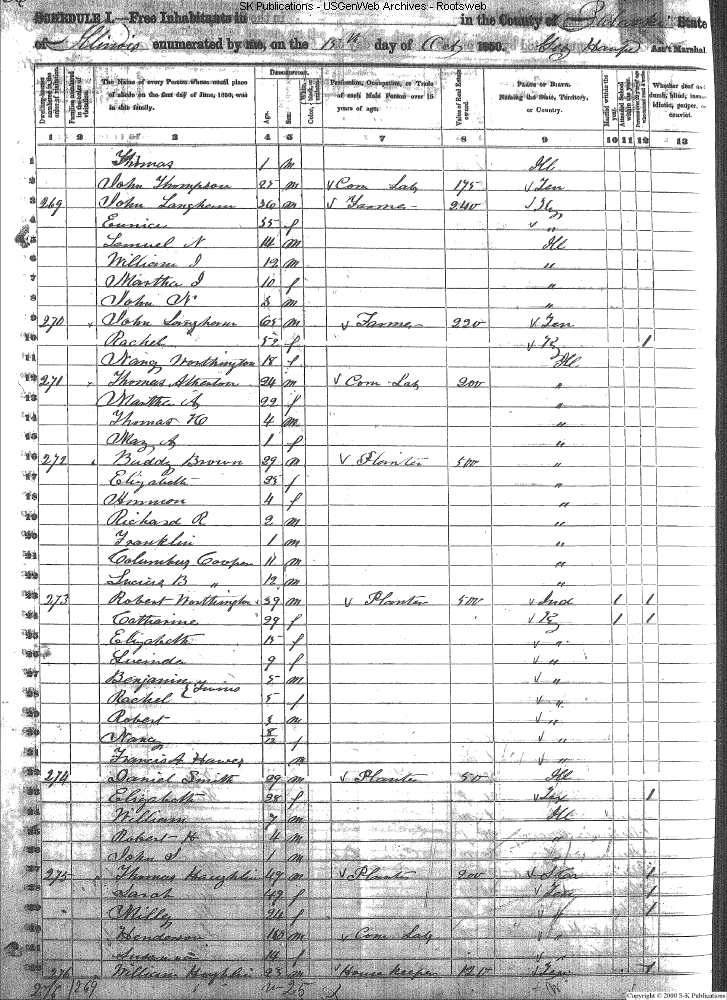 SK Publications - USGenWeb Archives - Rootsweb
SCHEDULE I.—Free Inhabitants in in the County of Pulaski State
of Illinois enumerated by me, on the 15th day of Octr 1850. Ass't Marshal
Dwelling-houses numbered in the order of visitation. Families numbered in the order of visitation. The Name of every Person whose usual place of abode on the first day of June, 1850, was in this family. DESCRIPTION. Age. Sex. Color, Profession, Occupation, or Trade of each Male Person over 15 years of age. Value of Real Estate owned. PLACE OF BIRTH. Naming the State, Territory, or Country. Married within the year. Attended School within the year. Whether deaf and dumb, blind, insane, idiotic, pauper, or convict.
1 2 3 4 5 6 7 8 9 10 11 12 13
1 Thomas 1 m Ill
2 John Thompson 25 m Com Lab 175 Ten
3 269 John Langham 36 m Farmer 240 Ky
4 Eunice 35 f "
5 Samuel N 14 m Ill
6 William J 12 m "
7 Martha J 10 f "
8 John N 3 m "
9 270 John Langham 65 m Farmer 220 Ten
10 Rachel 52 f Ky 1
11 Nancy Worthington 18 f Ill
12 271 Thomas Atherton 24 m Com Lab 200 "
13 Martha A 22 f "
14 Thomas 4 m "
15 May A 1 f "
16 272 Buddy Brown 29 m Planter 500 "
17 Elizabeth 25 f "
18 4 f "
19 Richard R 2 m "
20 Franklin 1 m "
21 Columbus Cooper 11 m "
22 Lucius B " 12 m "
23 273 Robert Worthington 39 m Planter 500 Ind 1 1
24 Catharine 29 f Ky 1 1
25 Elizabeth 15 f "
26 Lucinda 9 f "
27 Benjamin } Twins 5 m "
28 Rachel 5 f "
29 Robert 3 m "
30 Nancy 8/12 f "
31 Francis A Hawes m "
32 274 Daniel Smith 29 m Planter 50 Ill
33 Elizabeth 28 f 1
34 William 7 m Ill
35 Robert H 4 m "
36 John J 1 m "
37 275 Thomas 49 m Planter 200 1
38 Sarah 49 f Ten 1
39 Milly 24 f " 1
40 Henderson m Com Lab "
41 Susanna 14 f "
42 276 William 23 m House keeper 120 Ten 1
Copyright © 2000 S-K Publications